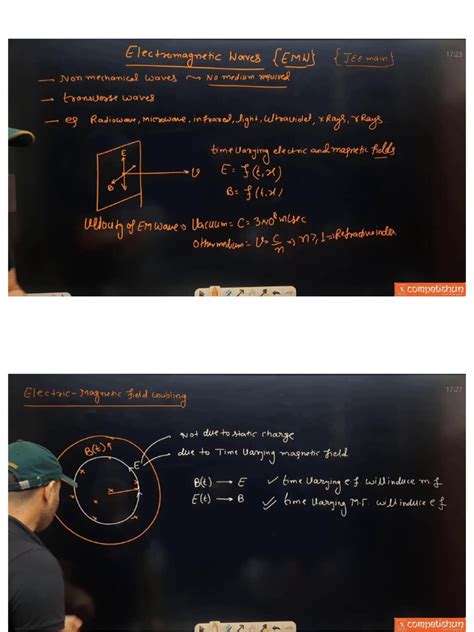 Electromagnetic Waves {EMW} {JEE main}
17:23
→ Non mechanical waves ⤳ No medium required
→ transverse waves
→ eg Radiowave, microwave, infrared, light, Ultraviolet, x Rays, γ Rays
time varying electric and magnetic fields
E
B
v
E = f(t,x)
B = f(t,x)
Velocity of EM wave ⇒ Vacuum = C = 3×10⁸ m/sec
Other medium = v = C/n ⇒ n ≥ 1 ⇒ Refractive index
competishun
Electric - Magnetic field coupling
17:27
B(t)↑
E
Not due to static charge
due to Time Varying magnetic field
B(t) → E ✓ time varying e.f will induce m.f
E(t) → B ✓ time Varying M.f. will induce e.f
competishun